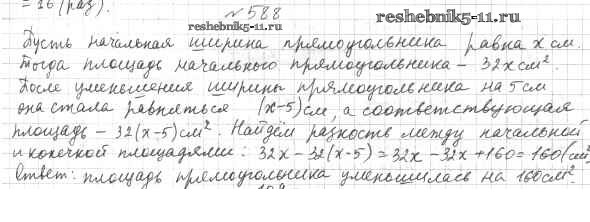 = 16 (раз).
№588
reshebnik5-11.ru
www.reshebnik5-11.ru
Пусть начальная ширина прямоугольника равна x см.
Тогда площадь начального прямоугольника – 32x см².
После уменьшения ширины прямоугольника на 5 см
она стала равняться (x-5) см, а соответствующая
площадь – 32(x-5) см². Найдём разность между начальной
и конечной площадями: 32x - 32(x-5) = 32x - 32x + 160 = 160 (см²
Ответ: площадь прямоугольника уменьшилась на 160 см².